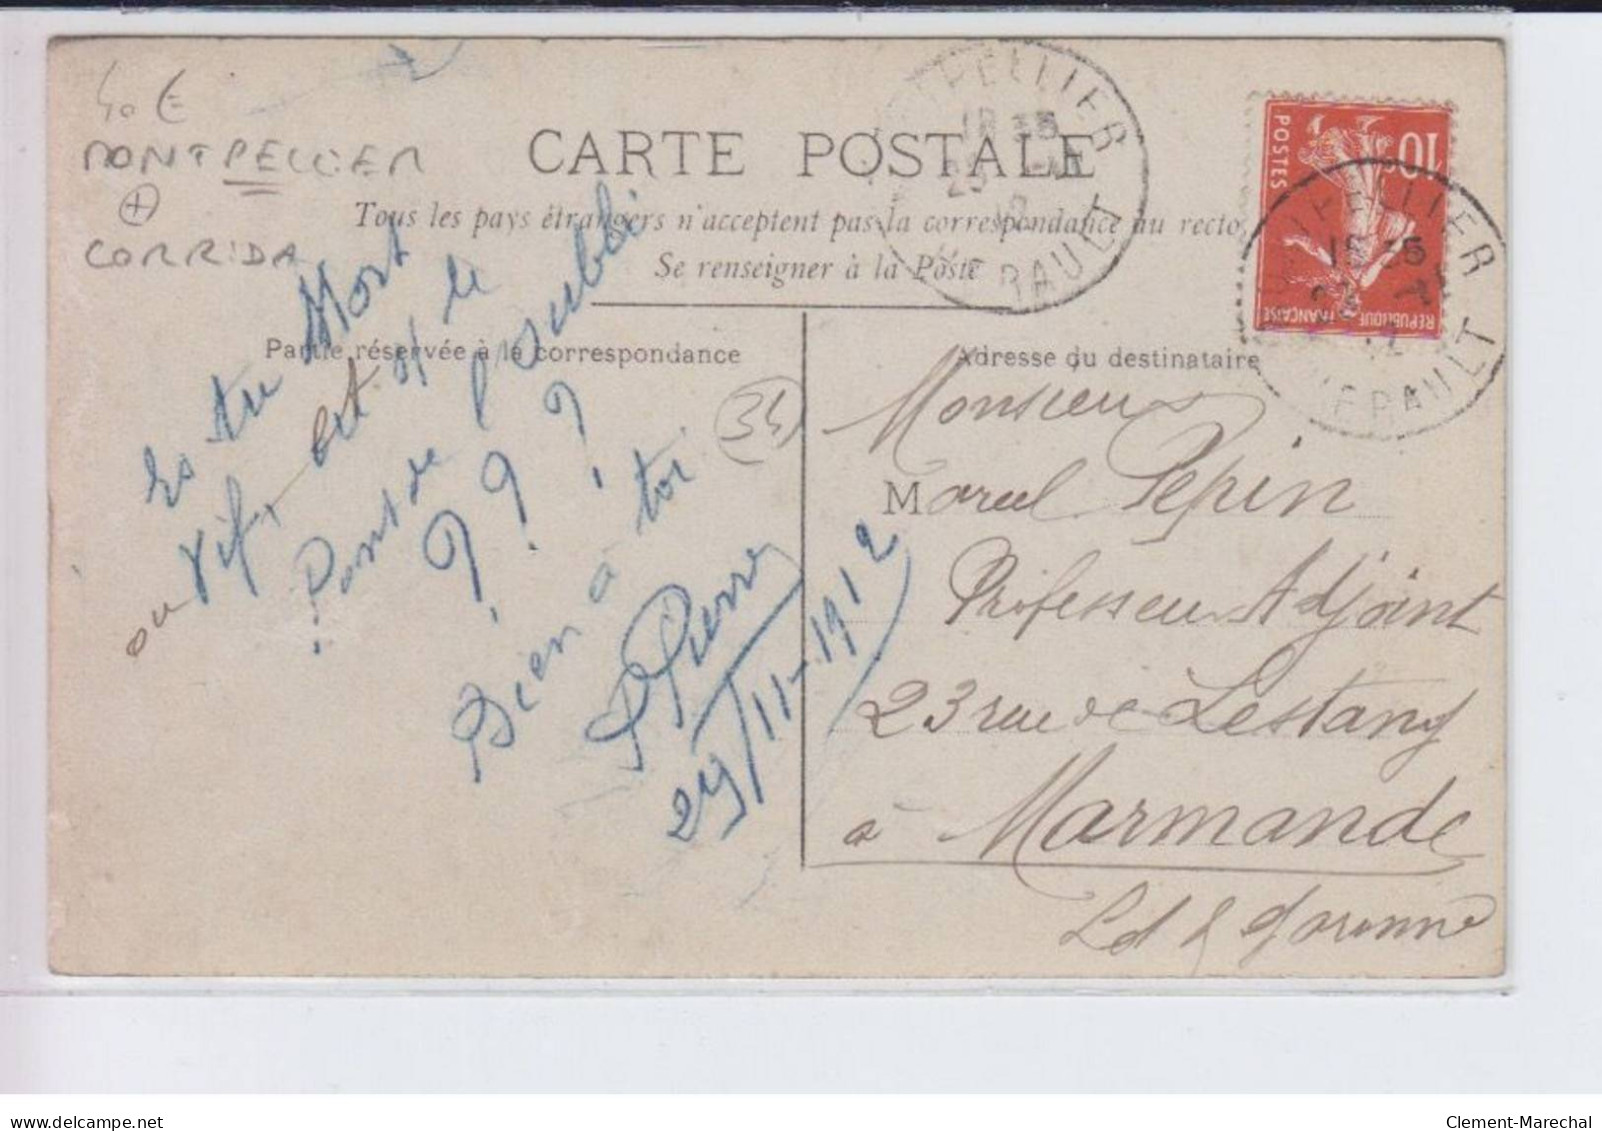 40 €
MONTPELLIER
+
CORRIDA
CARTE POSTALE
Tous les pays étrangers n'acceptent pas la correspondance au recto
Se renseigner à la Poste
Partie réservée à la correspondance
Adresse du destinataire
Es tu Mort
ou Vif, est ce le
Pont de l'oubli
? ? ?
Bien à toi
Pierre
29/11-1912
34
Monsieur
M Marcel Pepin
Professeur Adjoint
23 rue de Lestang
à Marmande
Lot & Garonne
MONTPELLIER
HERAULT
10
POSTES
REPUBLIQUE FRANÇAISE
MONTPELLIER
HERAULT
delcampe.net
Clement-Marechal